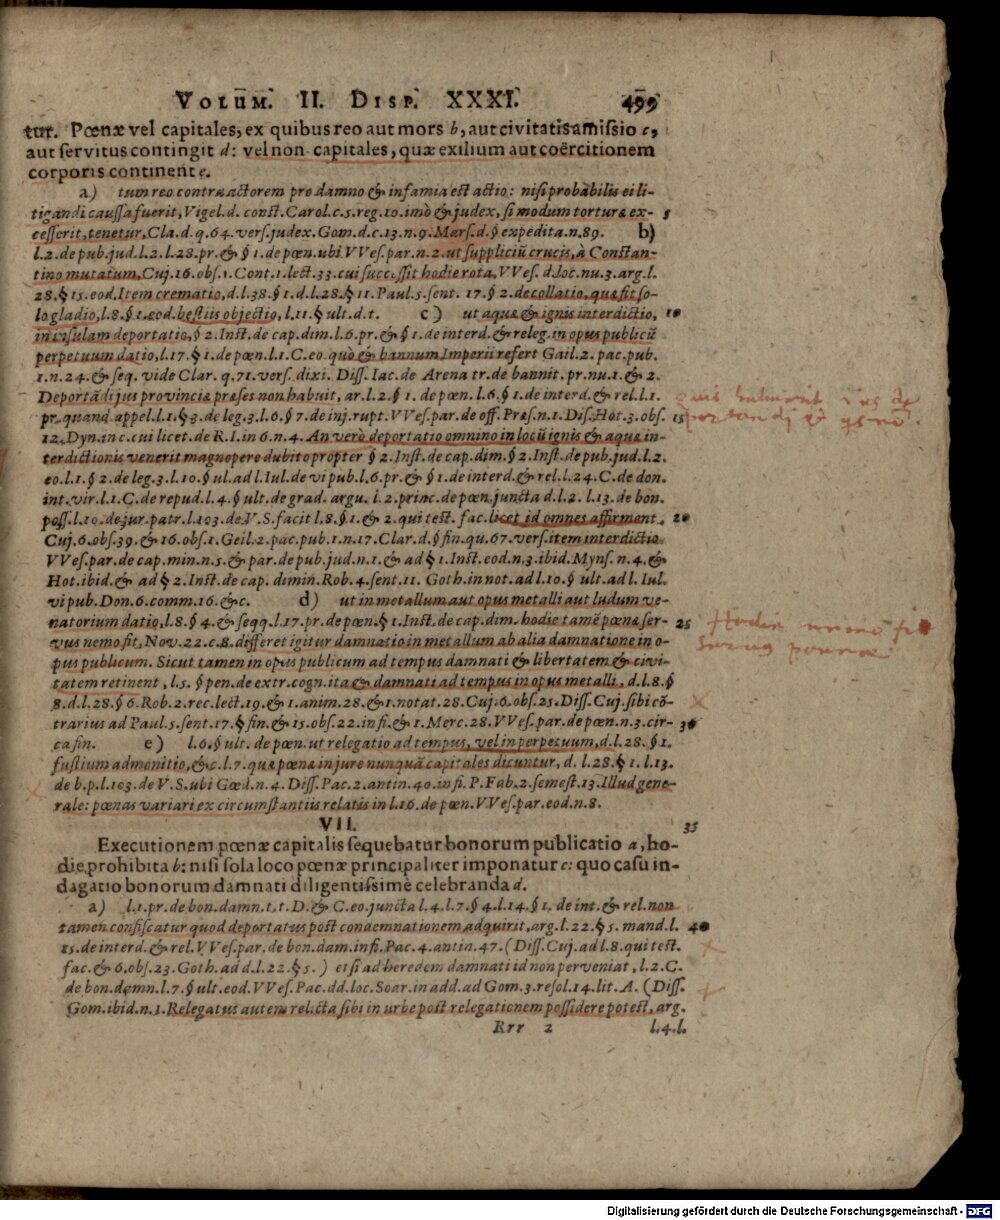 VOLŪM. II. DISP. XXXI. 499
tur. Pœnæ vel capitales, ex quibus reo aut mors b, aut civitatis amissio c,
aut servitus contingit d: vel non capitales, quæ exilium aut coërcitionem
corporis continent e.
a) tum reo contra actorem pro damno & infamia est actio: nisi probabilis ei li-
tigandi caussa fuerit, Vigel. d. const. Carol. c. 5. reg. 10. imò & judex, si modum torturæ ex- 5
cesserit, tenetur, Cla. d. q. 64. vers. judex. Gom. d. c. 13. n. 9. Mars. d. § expedita. n. 89. b)
l. 2. de pub. jud. l. 2. l. 28. pr. & § 1. de pœn. ubi VVes. par. n. 2. ut suppliciū crucis, à Constan-
tino mutatum, Cuj. 16. obs. 1. Cont. 1. lect. 33. cui successit hodie rota, VVes. d. loc. nu. 3. arg. l.
28. § 15. eod. Item crematio, d. l. 38. § 1. d. l. 28. § 11. Paul. 5. sent. 17. § 2. decollatio, quæ fit so-
lo gladio, l. 8. § 1. eod. bestiis objectio, l. 11. § ult. d. t. c) ut aquæ & ignis interdictio, 10
in insulam deportatio, § 2. Inst. de cap. dim. l. 6. pr. & § 1. de interd. & releg. in opus publicū
perpetuum datio, l. 17. § 1. de pœn. l. 1. C. eo. quò & bannum Imperii refert Gail. 2. pac. pub.
1. n. 24. & seq. vide Clar. q. 71. vers. dixi. Diss. Iac. de Arena tr. de bannit. pr. nu. 1. & 2.
Deportādi jus provinciæ præses non habuit, ar. l. 2. § 1. de pœn. l. 6. § 1. de interd. & rel. l. 1.
pr. quand. appel. l. 1. § 3. de leg. 3. l. 6. § 7. de inj. rupt. VVes. par. de off. Præs. n. 1. Dis. Hot. 3. obs. 15
12. Dyn. in c. cui licet. de R. I. in 6. n. 4. An verò deportatio omnino in locū ignis & aquæ in-
terdictionis venerit magnopere dubito propter § 2. Inst. de cap. dim. § 2. Inst. de pub. jud. l. 2.
eo. l. 1. § 2. de leg. 3. l. 10. § ul. ad l. Iul. de vi pub. l. 6. pr. & § 1. de interd. & rel. l. 24. C. de don.
int. vir. l. 1. C. de repud. l. 4. § ult. de grad. argu. l. 2. princ. de pœn. juncta d. l. 2. l. 13. de bon.
poss. l. 10. de jur. patr. l. 103. de V. S. facit l. 8. § 1. & 2. qui test. fac. licet id omnes affirment. 20
Cuj. 6. obs. 39. & 16. obs. 1. Geil. 2. pac. pub. 1. n. 17. Clar. d. § fin. qu. 67. vers. item interdictio.
VVes. par. de cap. min. n. 5. & par. de pub. jud. n. 1. & ad § 1. Inst. eod. n. 3. ibid. Myns. n. 4. &
Hot. ibid. & ad § 2. Inst. de cap. dimin. Rob. 4. sent. 11. Goth. in not. ad l. 10. § ult. ad l. Iul.
vi pub. Don. 6. comm. 16. & c. d) ut in metallum aut opus metalli aut ludum ve-
natorium datio, l. 8. § 4. & seqq. l. 17. pr. de pœn. § 1. Inst. de cap. dim. hodie tamē pœnæ ser- 25
vus nemo fit, Nov. 22. c. 8. differet igitur damnatio in metallum ab alia damnatione in o-
pus publicum. Sicut tamen in opus publicum ad tempus damnati & libertatem & civi-
tatem retinent, l. 5. § pen. de extr. cogn. ita & damnati ad tempus in opus metalli, d. l. 8. §
8. d. l. 28. § 6. Rob. 2. rec. lect. 19. & 1. anim. 28. & 1. notat. 28. Cuj. 6. obs. 25. Diss. Cuj. sibi cō-
trarius ad Paul. 5. sent. 17. § fin. & 15. obs. 22. in fi. & 1. Merc. 28. VVes. par. de pœn. n. 3. cir- 30
ca fin. e) l. 6. § ult. de pœn. ut relegatio ad tempus, vel in perpetuum, d. l. 28. § 1.
fustium admonitio, &c. l. 7. quæ pœnæ in jure nunquā capitales dicuntur, d. l. 28. § 1. l. 13.
de b. p. l. 103. de V. S. ubi Gœd. n. 4. Diss. Pac. 2. antin. 40. in fi. P. Fab. 2. semest. 13. Illud gene-
rale: pœnas variari ex circumstantiis relatis in l. 16. de pœn. VVes. par. eod. n. 8.
VII. 35
Executionem pœnæ capitalis sequebatur bonorum publicatio a, ho-
die prohibita b: nisi sola loco pœnæ principaliter imponatur c: quo casu in-
dagatio bonorum damnati diligentissimè celebranda d.
a) l. 1. pr. de bon. damn. t. t. D. & C. eo. juncta l. 4. l. 7. § 4. l. 14. § 1. de int. & rel. non
tamen confiscatur quod deportatus post condemnationem adquirit, arg. l. 22. § 5. mand. l. 40
15. de interd. & rel. VVes. par. de bon. dam. in fi. Pac. 4. antia. 47. (Diss. Cuj. ad l. 8. qui test.
fac. & 6. obs. 23. Goth. ad d. l. 22. § 5.) etsi ad heredem damnati id non perveniat, l. 2. C.
de bon. damn. l. 7. § ult. eod. VVes. Pac. dd. loc. Soar. in add. ad Gom. 3. resol. 14. lit. A. (Diss.
Gom. ibid. n. 1. Relegatus autem relicta sibi in urbe post relegationem possidere potest, arg.
Rrr 2 l. 4. l.
Hodie nemo fit
servus poenae
Digitalisierung gefördert durch die Deutsche Forschungsgemeinschaft - DFG